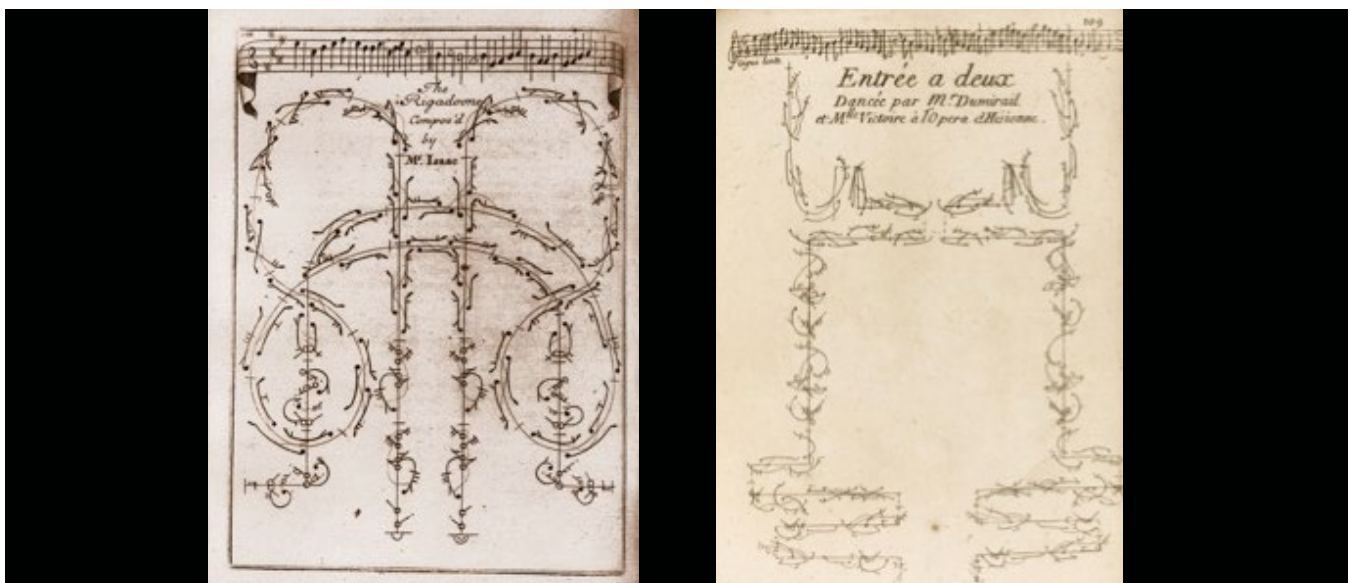 The
Rigadoone
Compos'd
by
Mr. Isaac
209
Entrée a deux
Dancée par Mr. Dumirail
et Mlle Victoire à l'Opera d'Hesionne.